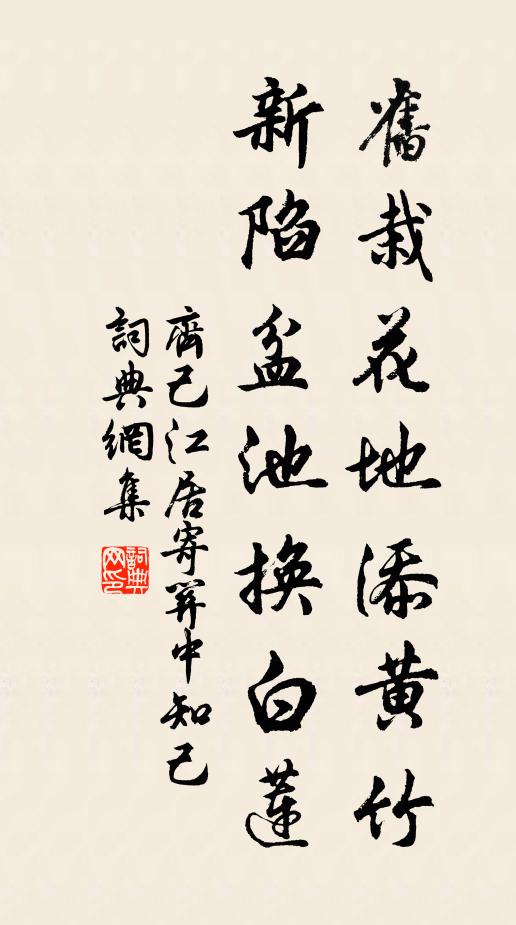 舊栽花地添黃竹
新陷盆池換白蓮
齊己江居寄關中知己
詞典網集
詞典網印